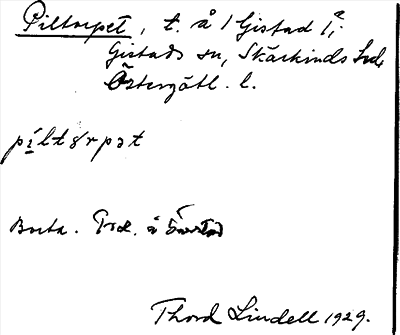 Piltorpet, t. å 1 Gistad 1;
Gistads sn, Skärkinds hd,
Östergötl. l.
píltɤrpət
Borta. Tod. å
Thord Lindell 1929.